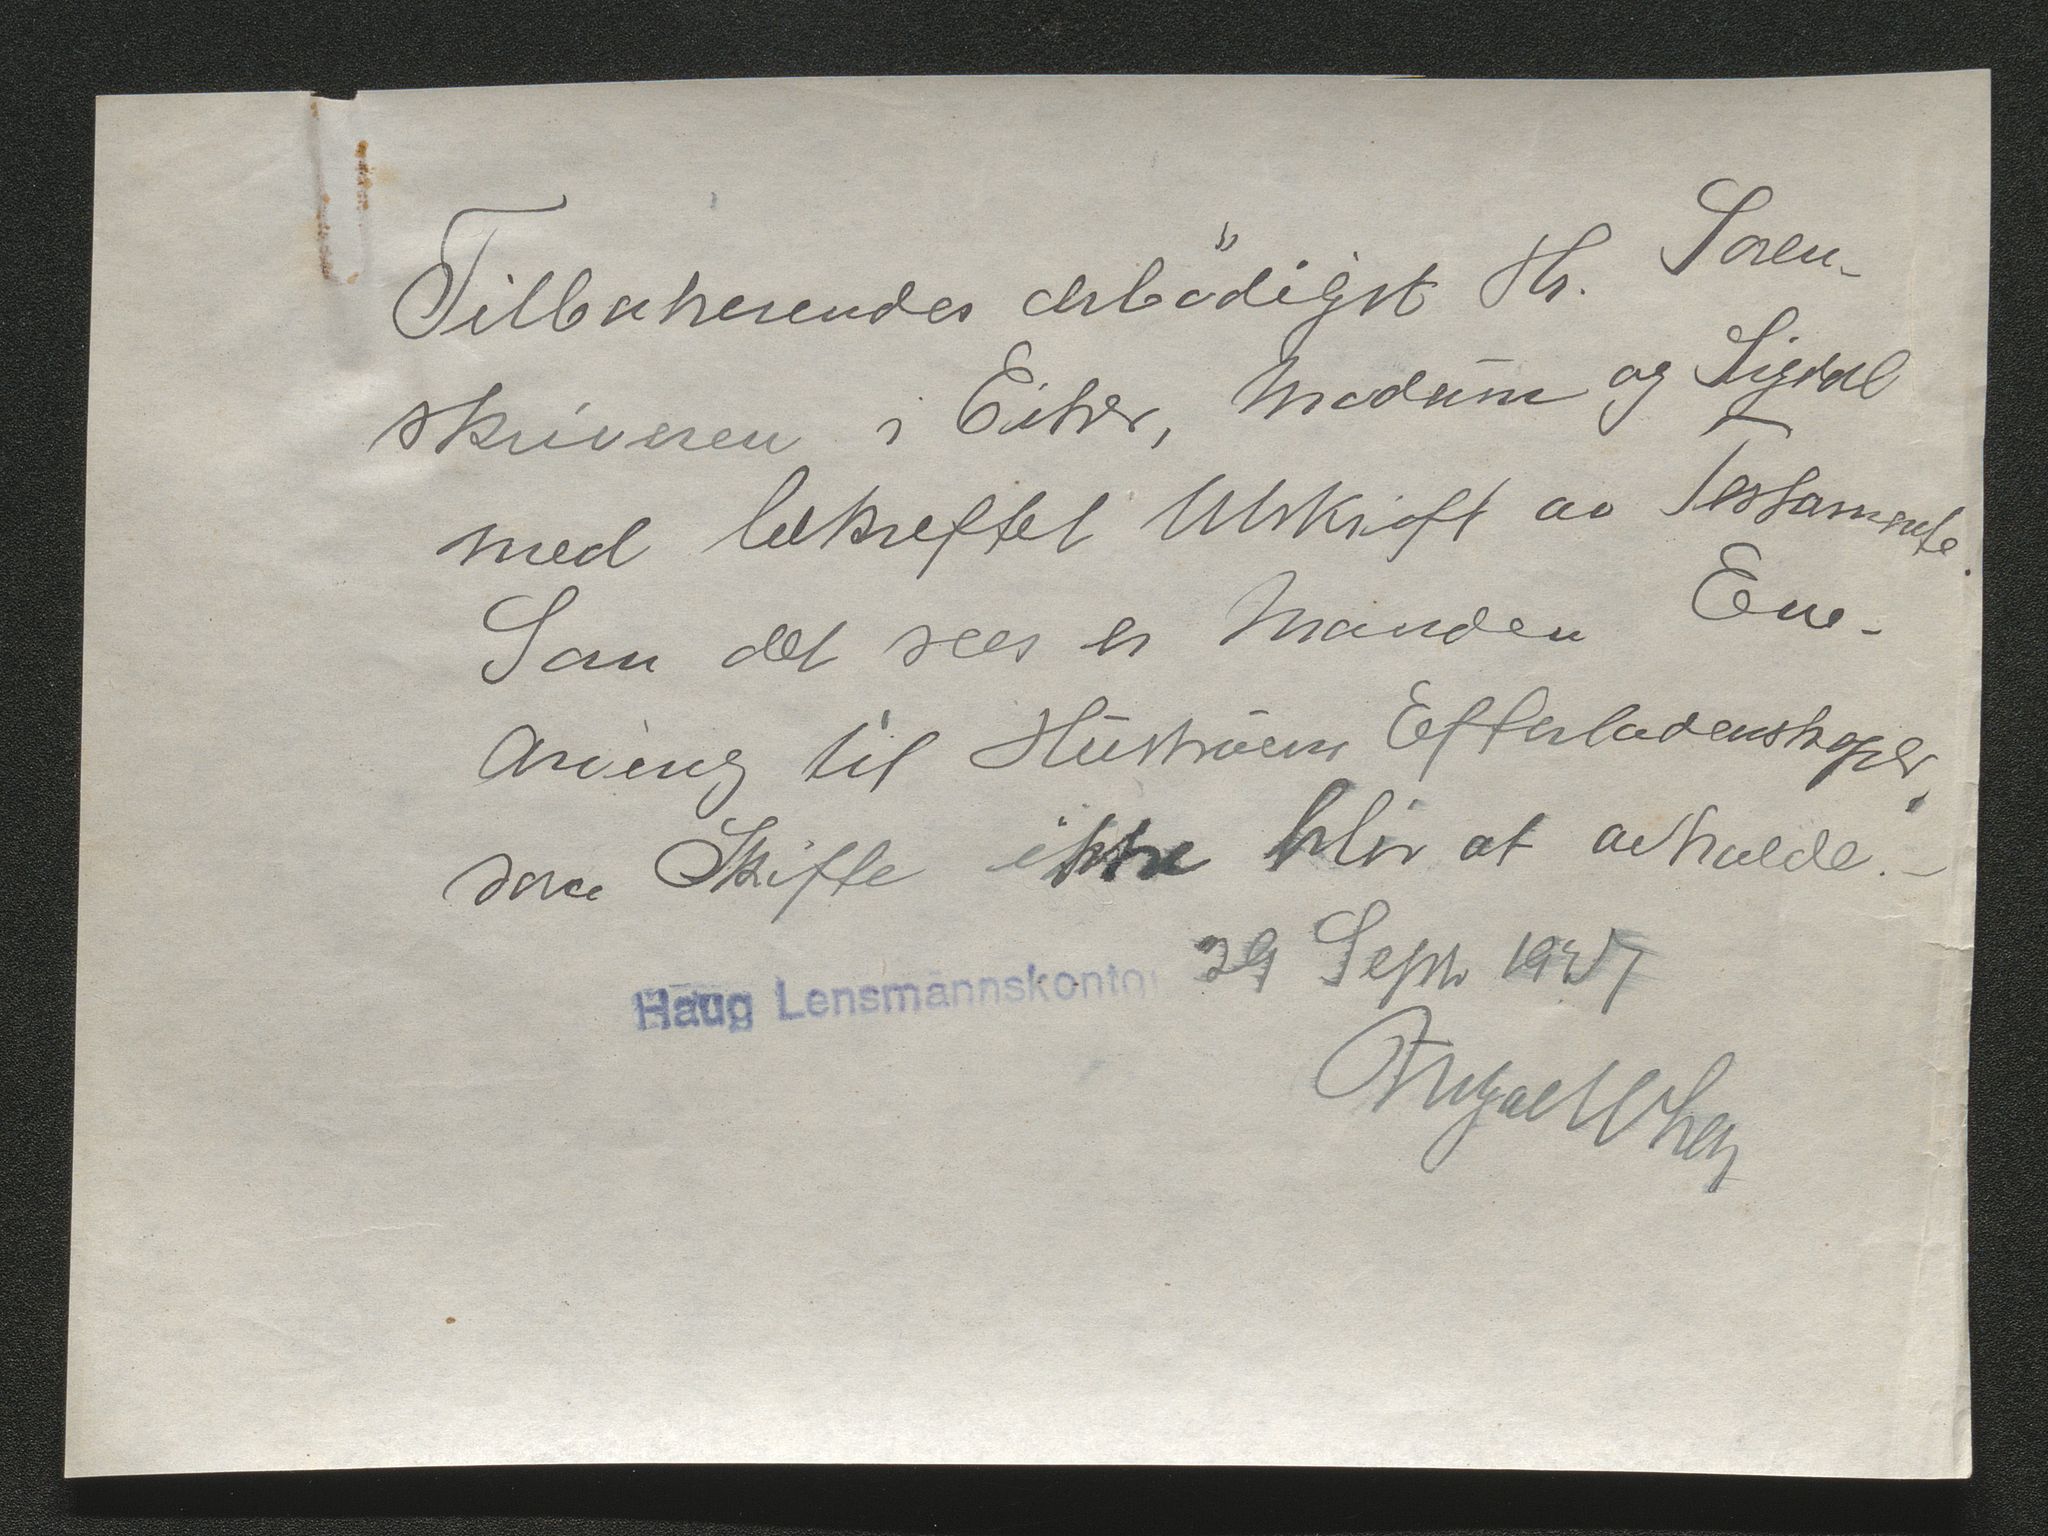 Tilbakesendes ærbödigst Hr. Soren-
skriveren i Eiker, Modum og Sigdal
med bekreftet Utskrift av Testamente.
Som det sees er Manden Ene-
arving til Hustruens Efterladenskaper,
saa Skifte ikke blir at avholde.-
Haug Lensmannskontor 29 Sept 1937